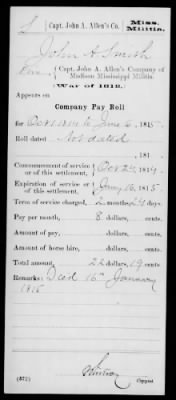 S | Capt. John A. Allen's Co. | Miss. Militia.
John A Smith
Capt. John A. Allen's Company of
Madison Mississippi Militia.
(War of 1812.)
Appears on
Company Pay Roll
for Oct 1 1814 to June 6, 1815.
Roll dated Not dated
, 181 .
Commencement of service or of this settlement, Oct 24, 1814
Expiration of service or of this settlement, Jany 16, 1815.
Term of service charged, 2 months 24 days.
Pay per month, 8 dollars, cents.
Amount of pay, dollars, cents.
Amount of horse hire, dollars, cents.
Total amount, 22 dollars, 19 cents.
Remarks: Died 16th January
1815
(572) Copyist.